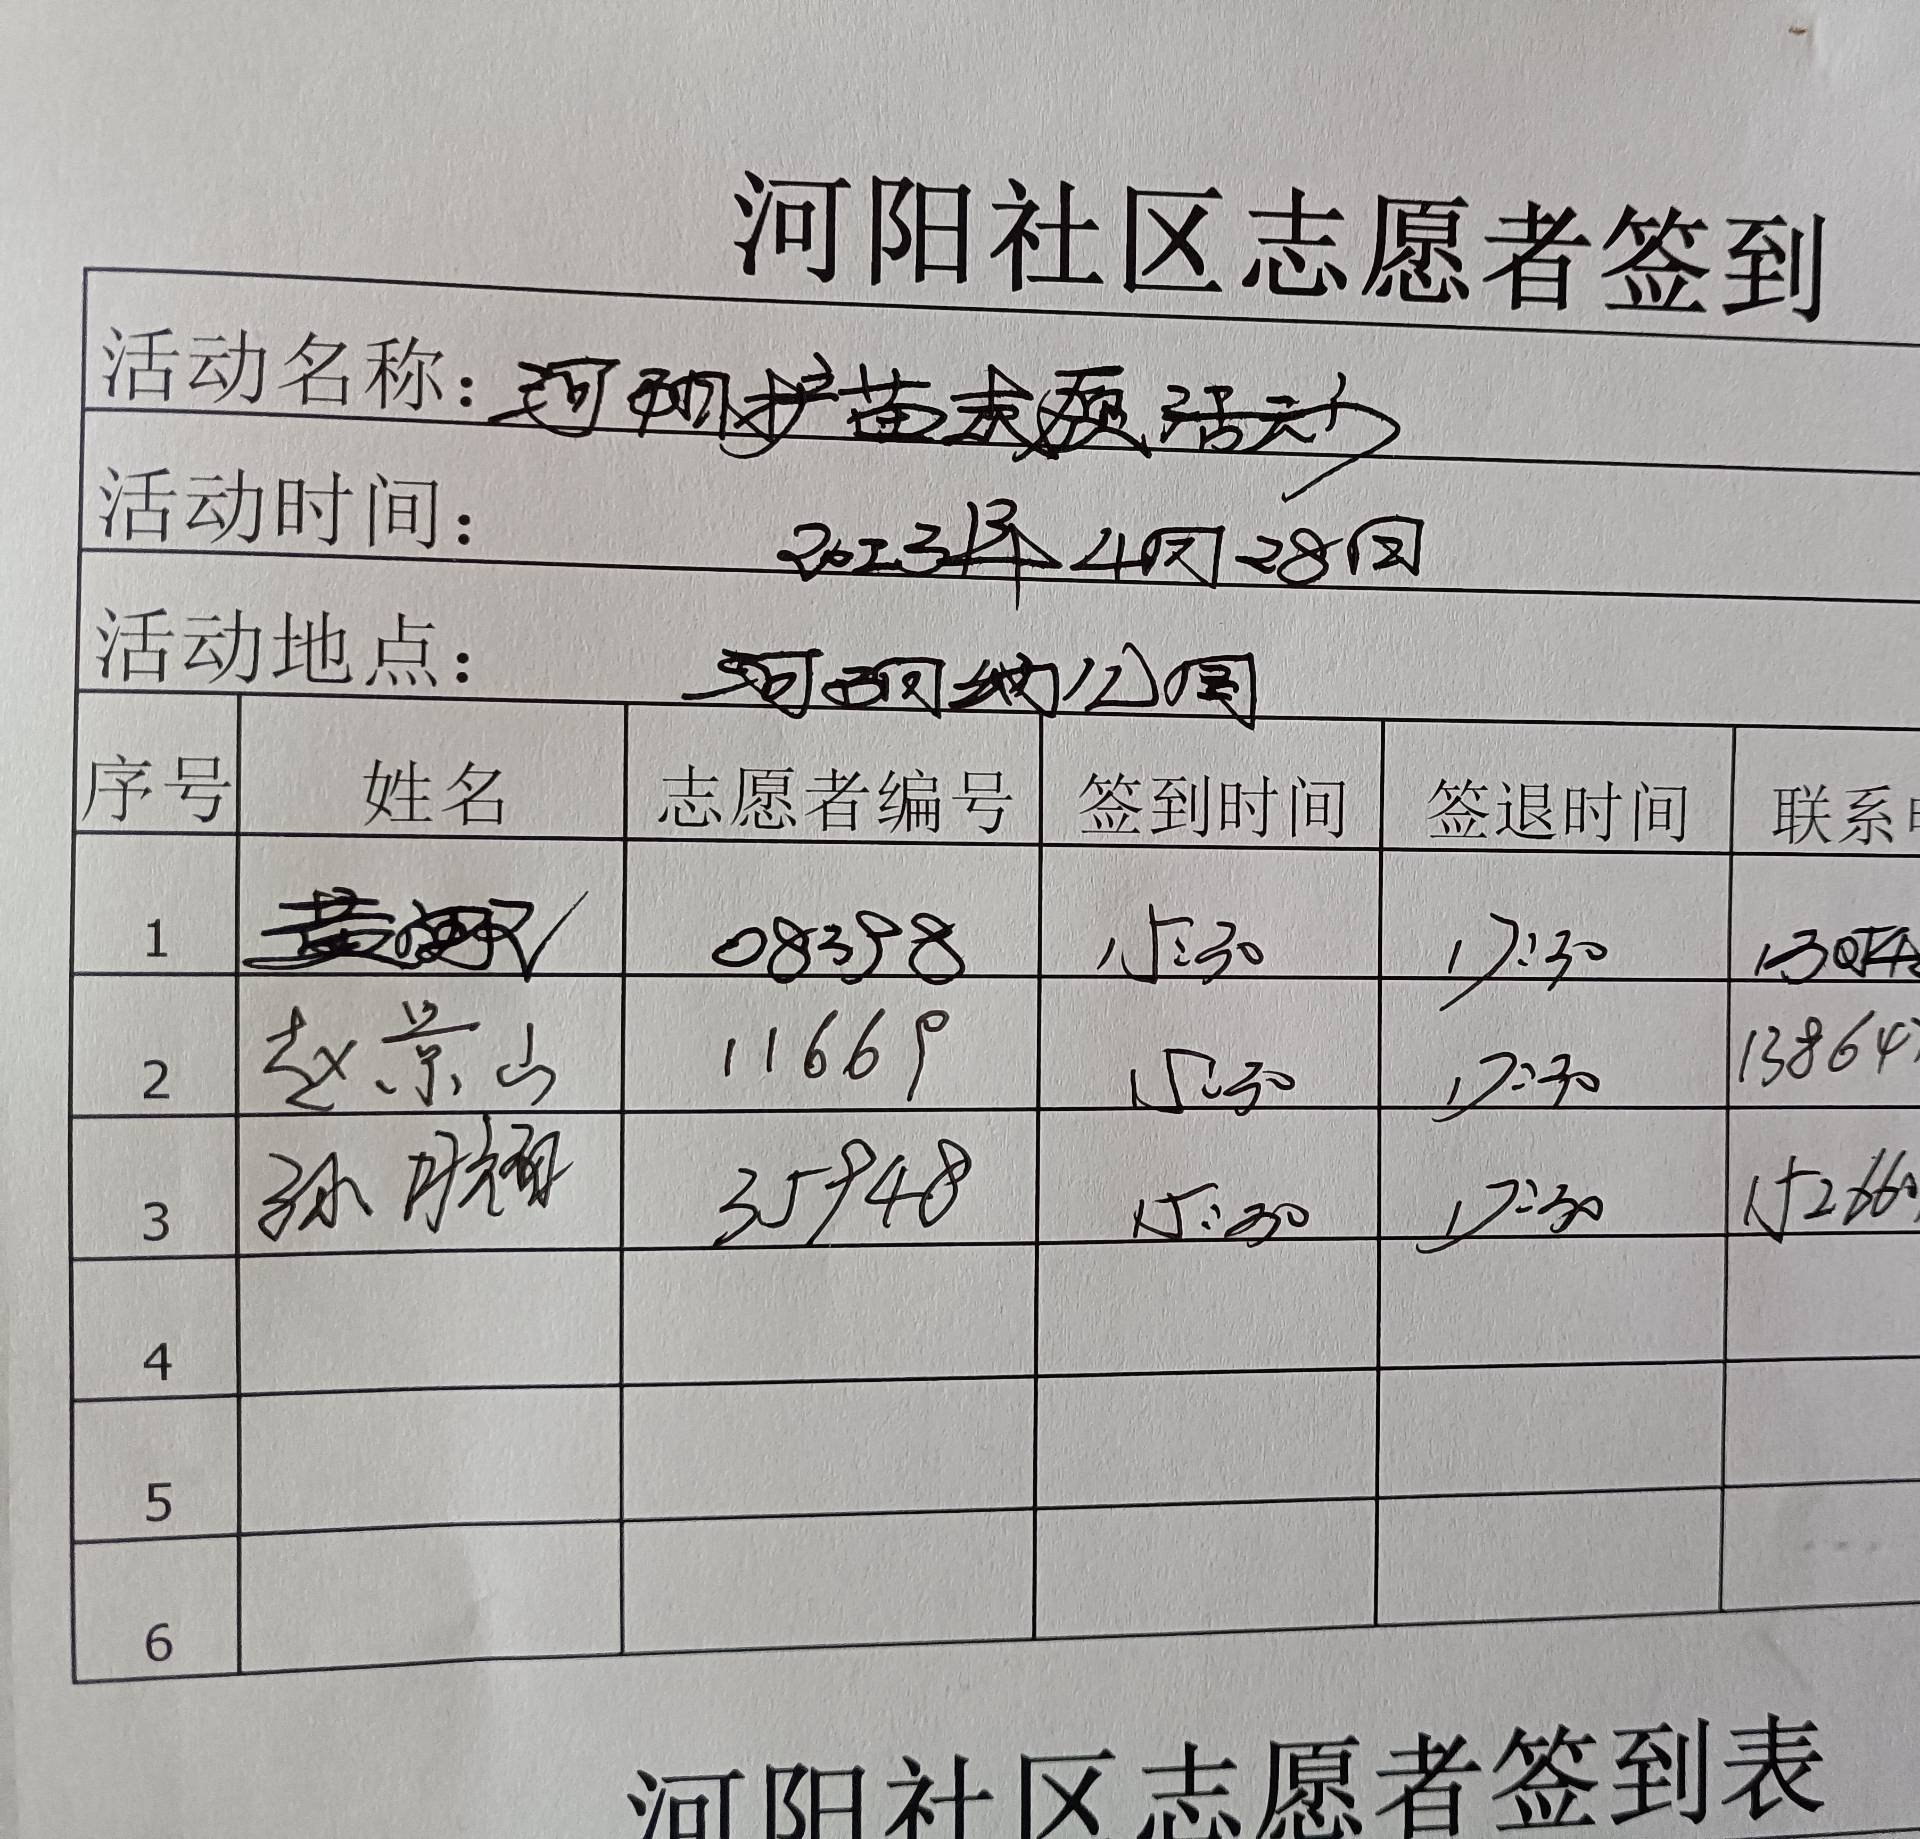 河阳社区志愿者签到
活动名称：河阳护苗志愿活动
活动时间：2023年4月28日
活动地点：河阳地公园
序号 姓名 志愿者编号 签到时间 签退时间 联系
1 08398 15:30 17:30
2 赵景山 11669 15:30 17:30 13864
3 孙 35948 15:30 17:30 15266
4
5
6
河阳社区志愿者签到表